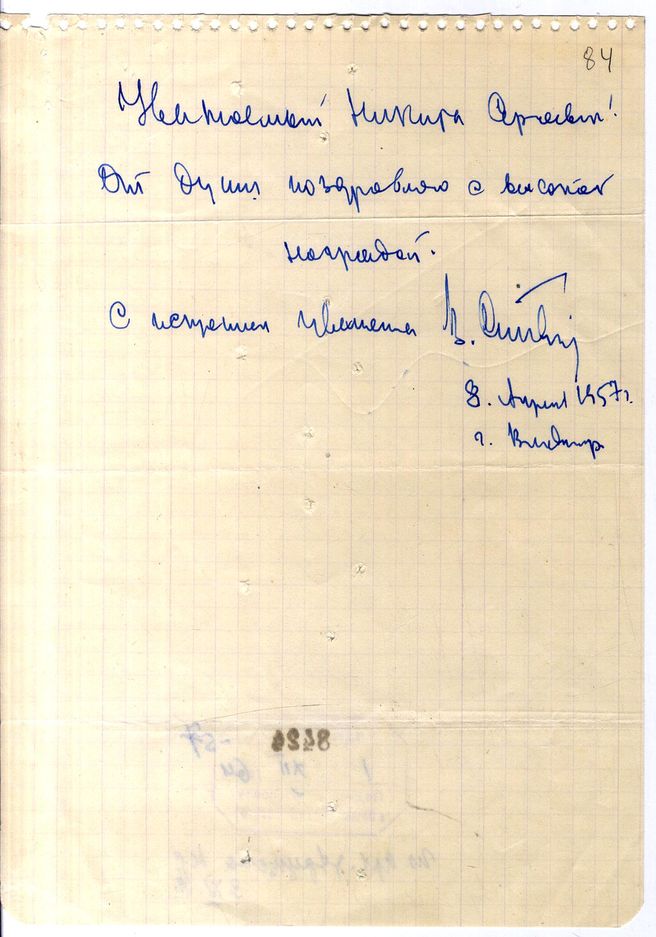 84
Уважаемый Никита Сергеевич!
От души поздравляю с высокой
наградой.
С искренним уважением В.
8. Апреля 1957 г.
г. Владимир
8424
-57